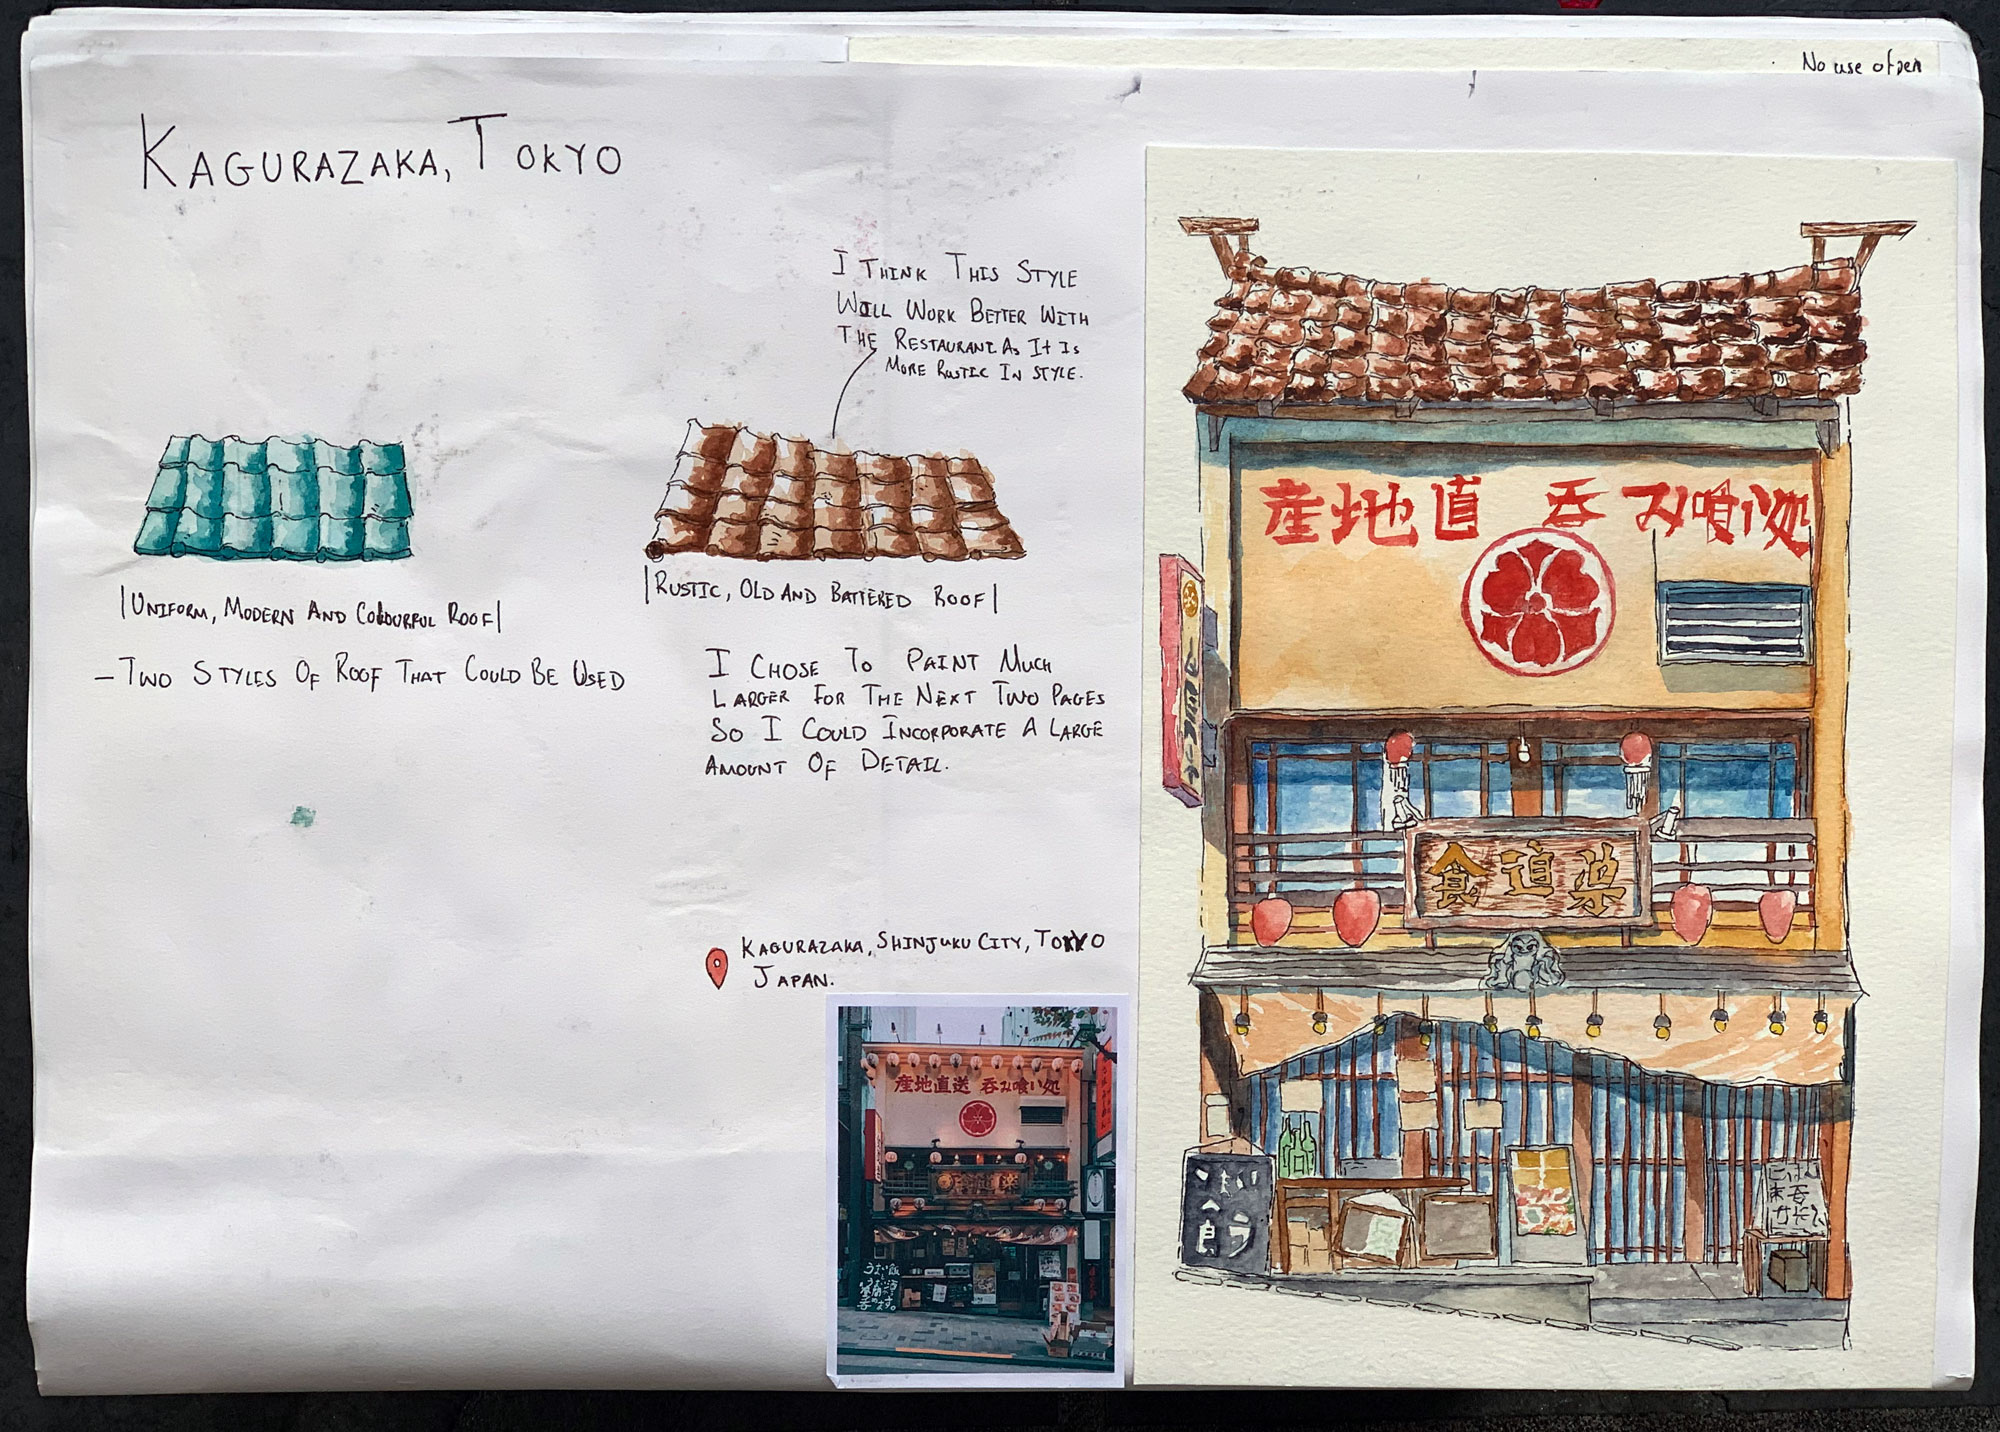 No use of pen
KAGURAZAKA, TOKYO
I THINK THIS STYLE
WILL WORK BETTER WITH
THE RESTAURANT AS IT IS
MORE RUSTIC IN STYLE.
|UNIFORM, MODERN AND COLOURFUL ROOF|
|RUSTIC, OLD AND BATTERED ROOF|
– TWO STYLES OF ROOF THAT COULD BE USED
I CHOSE TO PAINT MUCH
LARGER FOR THE NEXT TWO PAGES
SO I COULD INCORPORATE A LARGE
AMOUNT OF DETAIL.
KAGURAZAKA, SHINJUKU CITY, TOKYO
JAPAN.
産地直送 呑み喰い処
産地直 呑み喰い処
食道楽